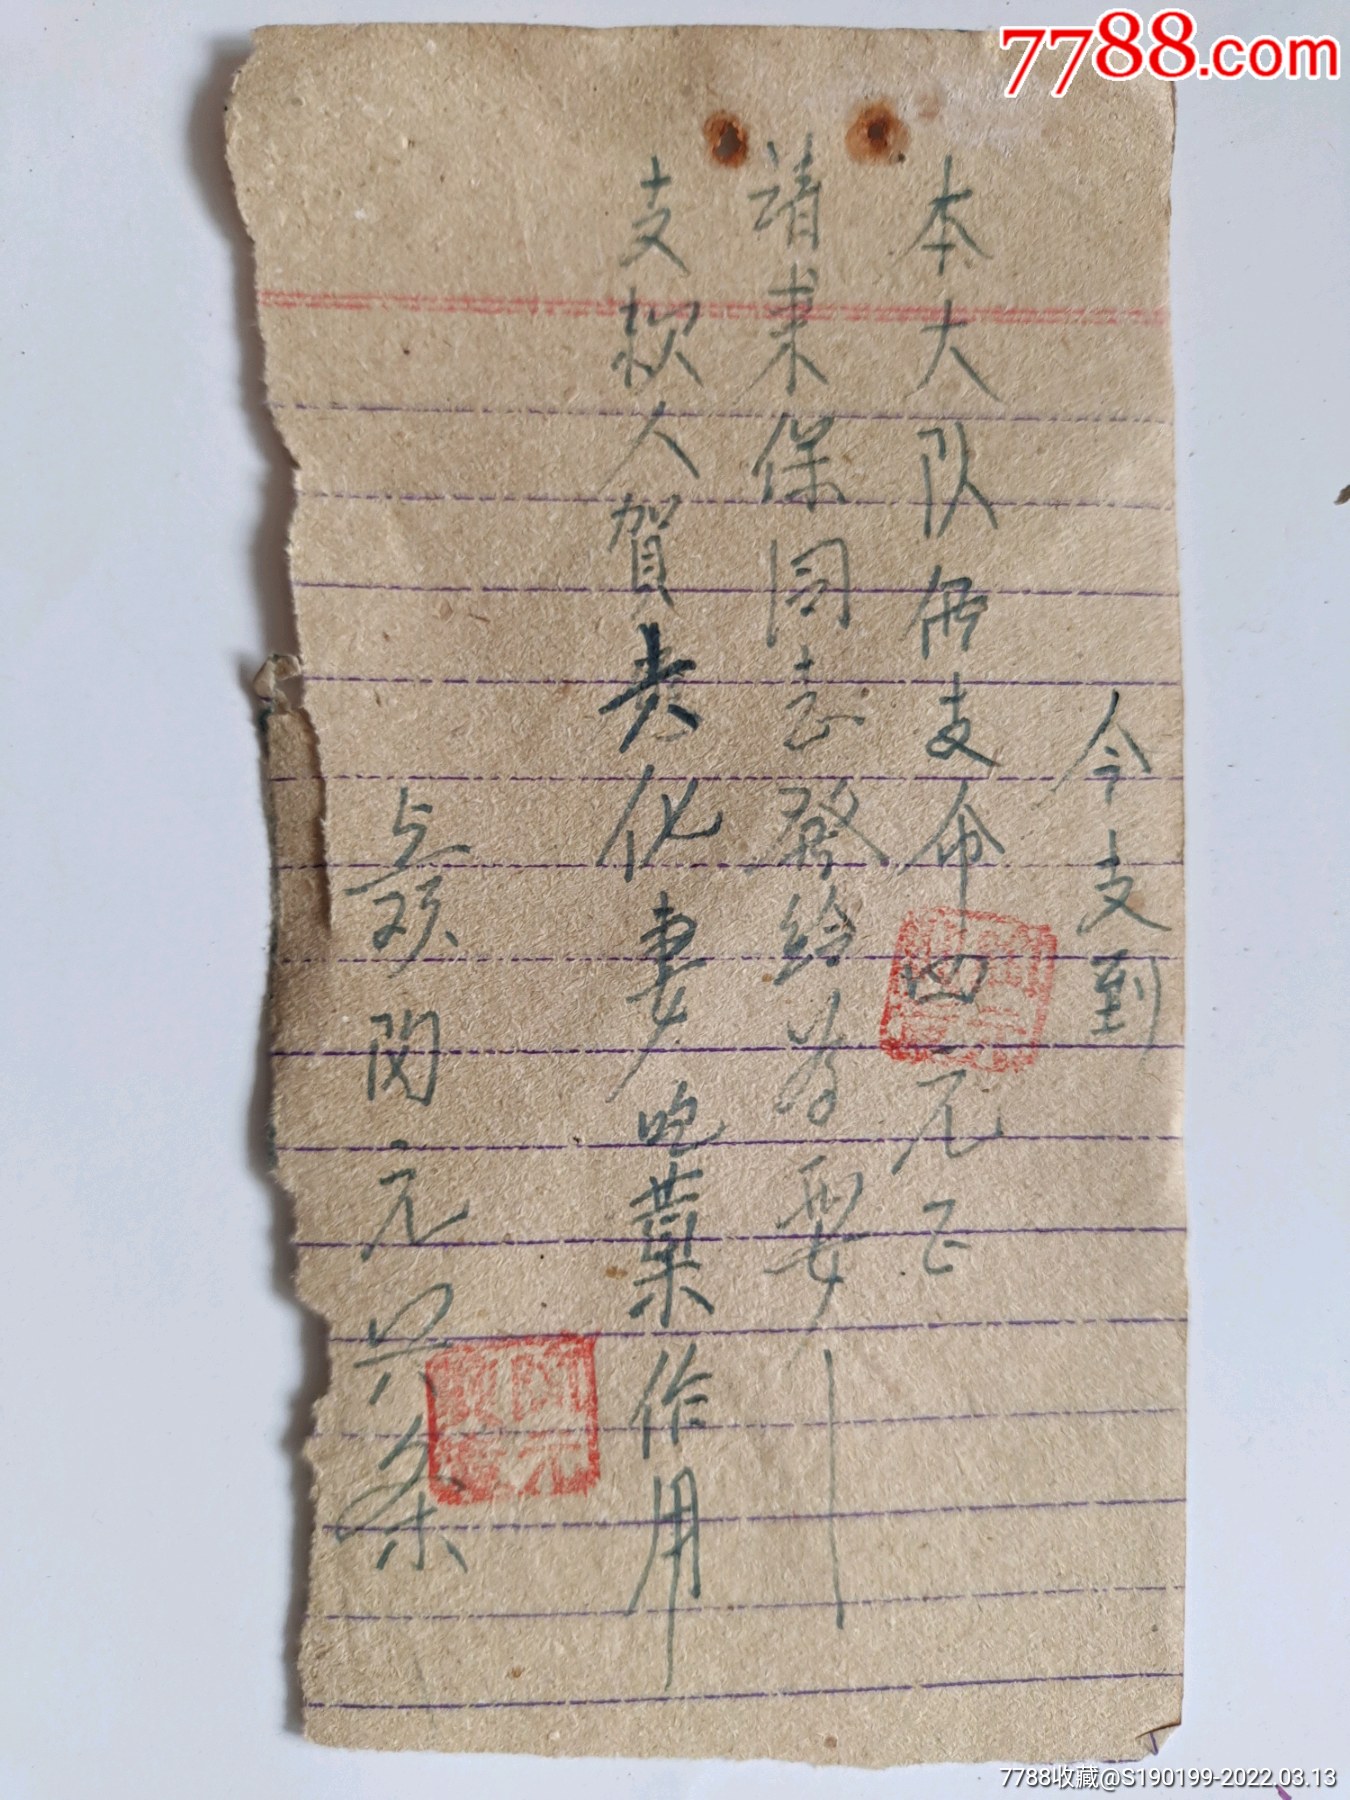 7788.com
今支到
本大队 支 币四元正
请来保同志發给为要
支款人賀贵化妻吃葉作用
点领 闵元兴条
7788收藏@S190199-2022.03.13